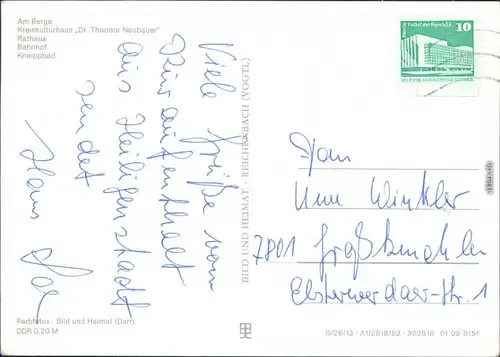 Am Berge
Kreiskulturhaus „Dr. Theodor Neubauer"
Rathaus
Bahnhof
Kneippbad
Viele Grüße vom
Kuraufenthalt
aus Heiligenstadt
sendet
Hans
BILD UND HEIMAT · REICHENBACH (VOGTL)
10
Fam
Uwe Winkler
7801 Großkmehlen
Elsterwerdaer-Str. 1
Farbfotos: Bild und Heimat (Darr)
DDR 0,20 M
IS/26/13 · A1/2818/82 · 302818 01 09 0151